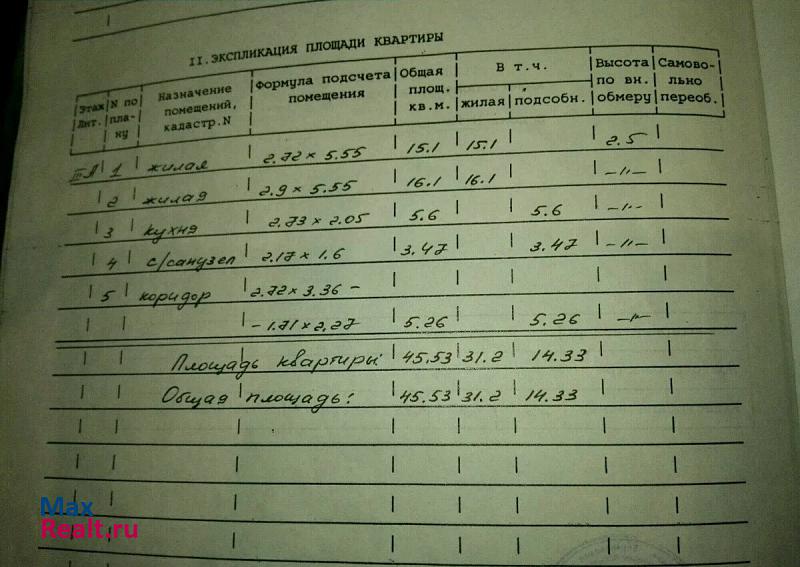 II. ЭКСПЛИКАЦИЯ ПЛОЩАДИ КВАРТИРЫ
Этаж Лит. | N по пла- ну | Назначение помещений, кадастр.N | Формула подсчета помещения | Общая площ. кв.м. | В т.ч. жилая | подсобн. | Высота по вн. обмеру | Самово- льно переоб.
III А | 1 | жилая | 2.72 × 5.55 | 15.1 | 15.1 | | 2.5 |
| 2 | жилая | 2.9 × 5.55 | 16.1 | 16.1 | | –"– |
| 3 | кухня | 2.73 × 2.05 | 5.6 | | 5.6 | –"– |
| 4 | с/санузел | 2.17 × 1.6 | 3.47 | | 3.47 | –"– |
| 5 | коридор | 2.72 × 3.36 –
– 1.71 × 2.27 | 5.26 | | 5.26 | –"– |
Площадь квартиры: 45.53 | 31.2 | 14.33
Общая площадь: 45.53 | 31.2 | 14.33
Max
Realt.ru